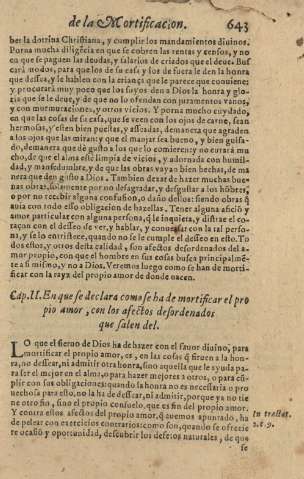 de la Mortificacion. 643
ber la dotrina Christiana, y cumplir los mandamientos diuinos.
Porna mucha diligẽcia en que se cobren las rentas y censos, y no
en que se paguen las deudas, y salarios de criados que el deue. Bus
cará modos, para que los de su casa y los de fuera le den la honra
que dessea, y le hablen con la criança que le parece que conuiene;
y procurará muy poco que los suyos den a Dios la honra y glo-
ria, que se le deue, y de que no lo ofendan con juramentos vanos,
y con murmuraciones, y otros vicios. Y porna mucho cuydado,
en que las cosas de su casa, que se veen con los ojos de carne, sean
hermosas, y esten bien puestas, y asseadas, de manera que agraden
a los ojos que las miran: y que el manjar sea bueno, y bien guisa-
do, de manera que dè gusto a los que lo comieren: y no mirará mu
cho, de que el alma esté limpia de vicios, y adornada con humil-
dad, y mansedumbre, y de que las obras vayan bien hechas, de ma
nera que den gusto a Dios. Tambien dexar de hazer muchas bue-
nas obras, solamente por no desagradar, y desgustar a los hõbres,
o por no recebir alguna confusion, o daño dellos: siendo obras q̃
auia con todo esso obligacion de hazellas. Tener alguna aficiõ y
amor particular con alguna persona, q̃ le inquieta, y distrae el co-
raçon con el desseo de ver, y hablar, y conuersar con la tal perso-
na, y se lo entristece, quando no se le cumple el desseo en esto. To
dos estos, y otros desta calidad, son afectos desordenados del a-
mor propio, con que el hombre en sus cosas busca principalmẽ-
te a si mismo, y no a Dios. Veremos luego como se han de morti-
ficar con la rayz del propio amor de donde nacen.
Cap. II. En que se declara como se ha de mortificar el pro
pio amor, con los afectos desordenados
que salen del.
LO que el sieruo de Dios ha de hazer con el fauor diuino, para
mortificar el propio amor, es, en las cosas q̃ siruen a la hon-
ra, no dessear, ni admitir otra honra, sino aquella que le ayuda pa-
ra ser el mejor en el alma, o para hazer mejores a otros, o para cũ-
plir con sus obligaciones: quando la honra no es necessaria o pro
uechosa para esto, no la ha de dessear, ni admitir, porque ya no tie
ne otro fin, sino el propio consuelo, que es fin del propio amor.
Y contra estos afectos del propio amor, q̃ auemos apuntado, ha
de pelear con exercicios contrarios: como son, quando se ofrecie
re ocasiõ y oportunidad, descubrir los defetos naturales, de que
In tractat.
se